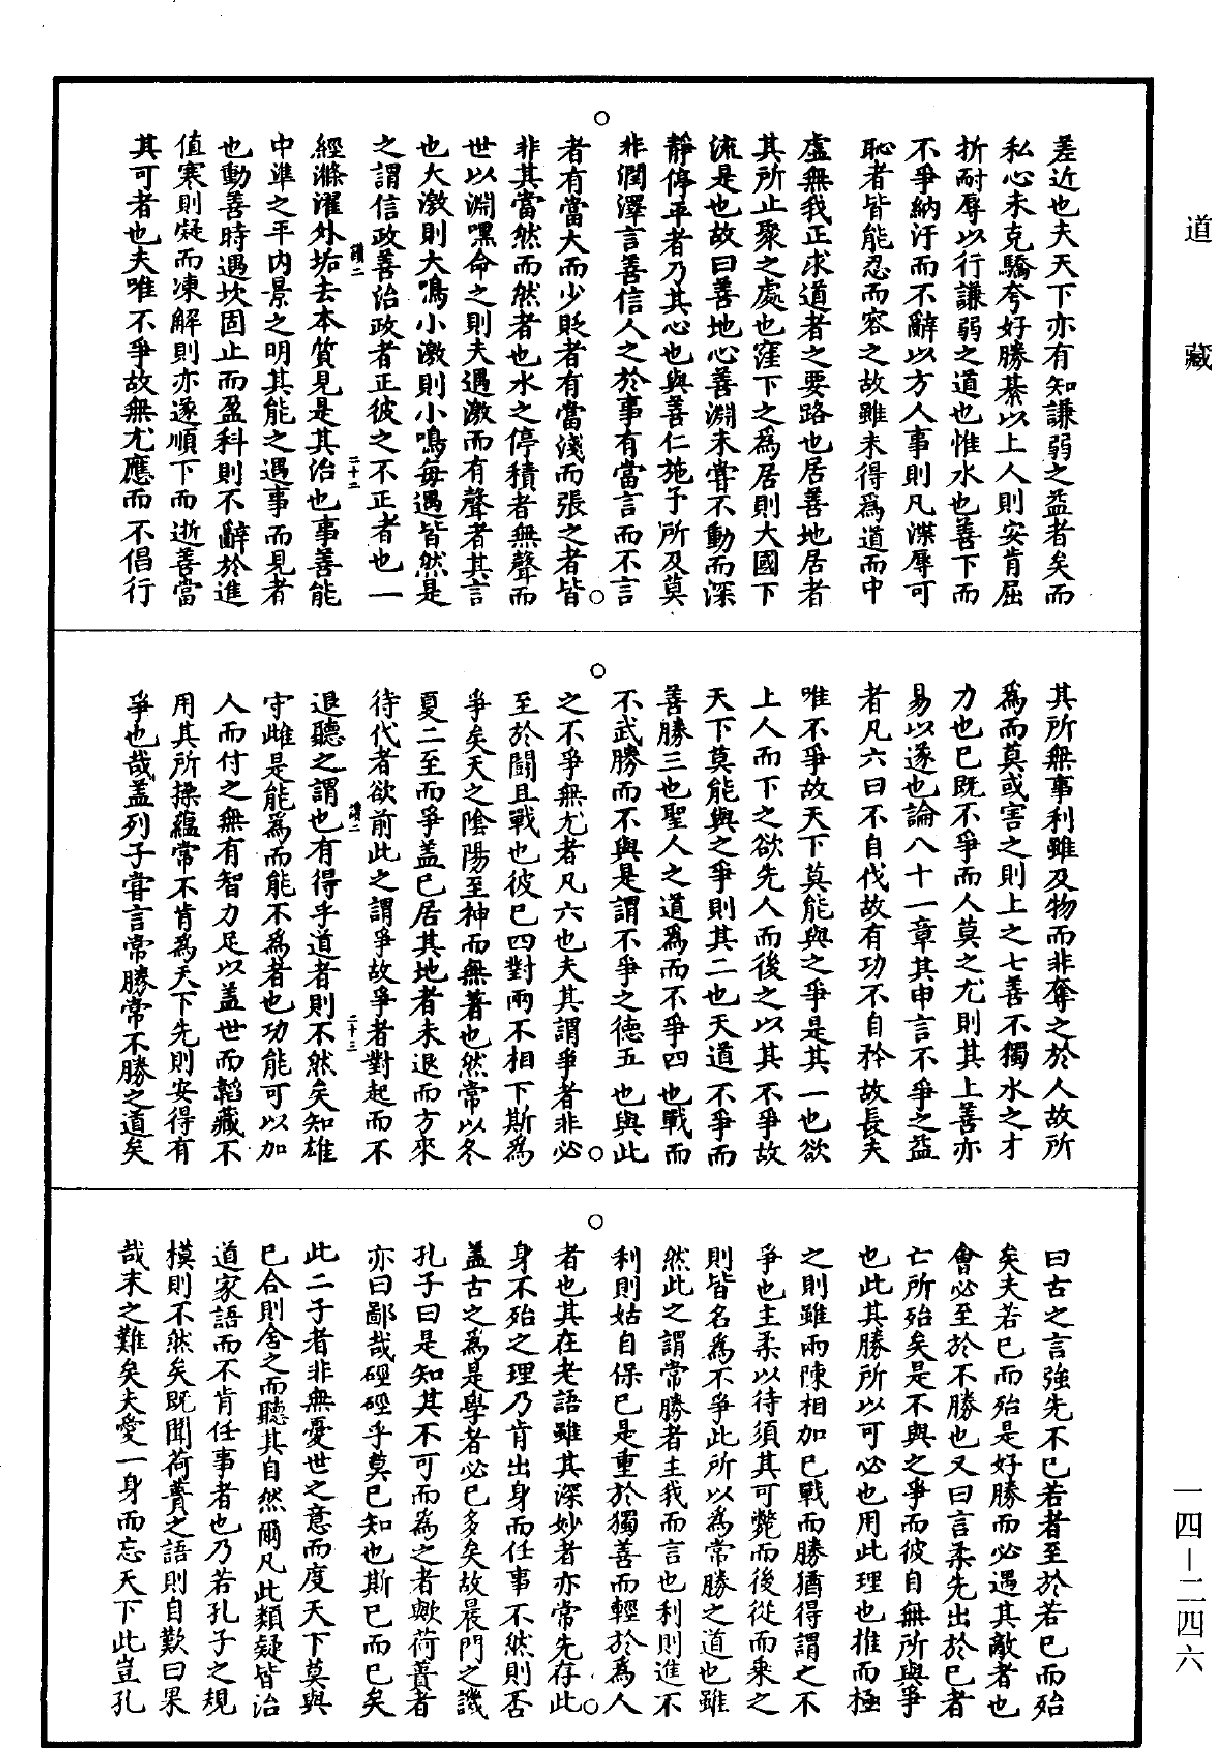 道藏
差近也夫天下亦有知謙弱之益者矣而
私心未克驕夸好勝綦以上人則安肯屈
折耐辱以行謙弱之道也惟水也善下而
不爭納汙而不辭以方人事則凡渫辱可
恥者皆能忍而容之故雖未得爲道而中
虛無我正求道者之要路也居善地居者
其所止聚之處也窪下之爲居則大國下
流是也故曰善地心善淵未嘗不動而深
靜停平者乃其心也與善仁施予所及莫
非潤澤言善信人之於事有當言而不言
者有當大而少貶者有當淺而張之者皆
非其當然而然者也水之停積者無聲而
世以淵嘿命之則夫遇激而有聲者其言
也大激則大鳴小激則小鳴每遇皆然是
之謂信政善治政者正彼之不正者也一
經滌濯外垢去本質見是其治也事善能
中準之平內景之明其能之遇事而見者
也動善時遇坎固止而盈科則不辭於進
值寒則凝而凍解則亦遂順下而逝善當
其可者也夫唯不爭故無尤應而不倡行
二十二
其所無事利雖及物而非奪之於人故所
爲而莫或害之則上之七善不獨水之才
力也已既不爭而人莫之尤則其上善亦
易以遂也論八十一章其申言不爭之益
者凡六曰不自伐故有功不自矜故長夫
唯不爭故天下莫能與之爭是其一也欲
上人而下之欲先人而後之以其不爭故
天下莫能與之爭則其二也天道不爭而
善勝三也聖人之道爲而不爭四也戰而
不武勝而不與是謂不爭之德五也與此
之不爭無尤者凡六也夫其謂爭者非必
至於鬪且戰也彼已四對兩不相下斯爲
爭矣天之陰陽至神而無著也然常以冬
夏二至而爭蓋已居其地者未退而方來
待代者欲前此之謂爭故爭者對起而不
退聽之謂也有得乎道者則不然矣知雄
守雌是能爲而能不爲者也功能可以加
人而付之無有智力足以蓋世而韜藏不
用其所操蘊常不肯為天下先則安得有
爭也哉蓋列子嘗言常勝常不勝之道矣
二十三
曰古之言強先不已若者至於若已而殆
矣夫若已而殆是好勝而必遇其敵者也
會必至於不勝也又曰言柔先出於已者
亡所殆矣是不與之爭而彼自無所與爭
也此其勝所以可必也用此理也推而極
之則雖兩陳相加已戰而勝猶得謂之不
爭也主柔以待須其可斃而後從而乘之
則皆名為不爭此所以為常勝之道也雖
然此之謂常勝者主我而言也利則進不
利則姑自保已是重於獨善而輕於為人
者也其在老語雖其深妙者亦常先存此
身不殆之理乃肯出身而任事不然則否
蓋古之為是學者必已多矣故晨門之譏
孔子曰是知其不可而為之者歟荷蕢者
亦曰鄙哉硜硜乎莫已知也斯已而已矣
此二子者非無憂世之意而度天下莫與
已合則舍之而聽其自然爾凡此類疑皆治
道家語而不肯任事者也乃若孔子之規
模則不然矣既聞荷蕢之語則自歎曰果
哉末之難矣夫愛一身而忘天下此豈孔
一四－二四六